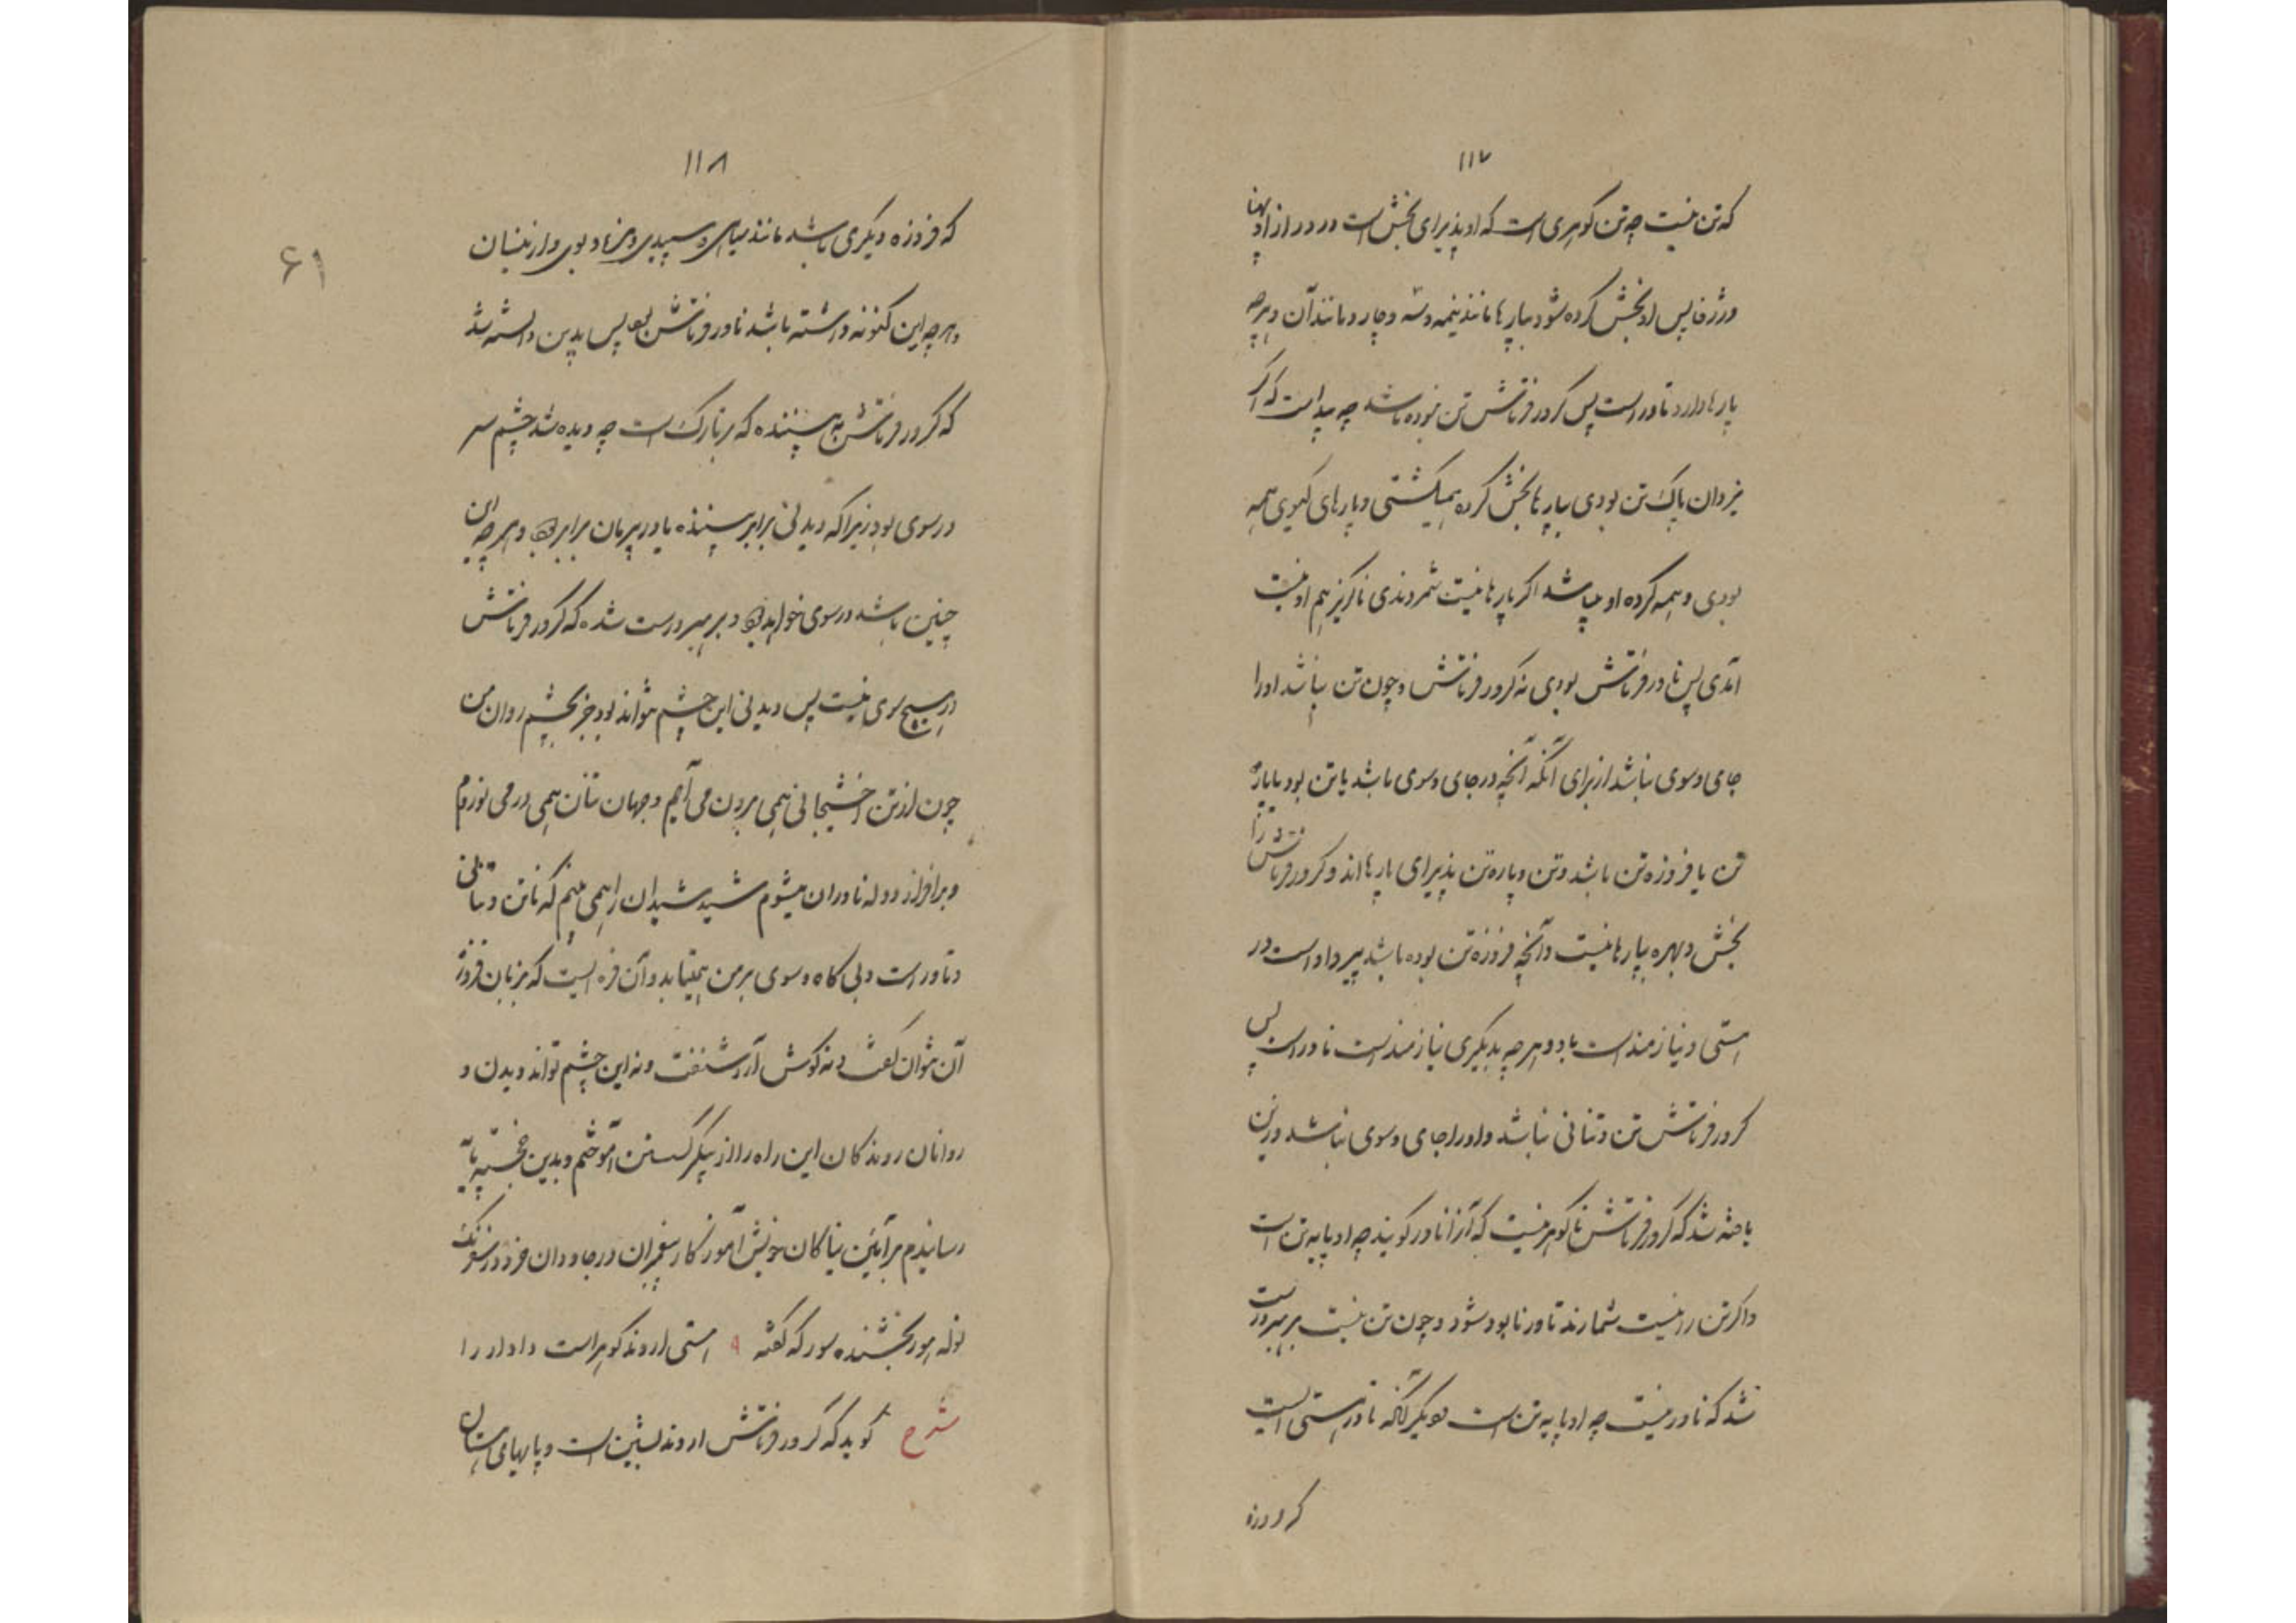 ۱۱۷
که تن نیست چه تن گوهری است که او پذیرای بخش است در دراز او پهنا
و ژرفا پس او بخش کرده شود بپارها مانند نیمه و سه و چار و مانند آن و هرچه
پارها دارد تاور است پس کرور فرتاش تن نبوده باشد چه پیداست که اگر
یزدان پاک تن بودی بپارها بخش کرده همیگشتی و پارهای گیوی همه
بودی و همه کرده او میباشد اگر پارها نیست شمردندی ناگریز هم او نیست
آمدی پس نا در فرتاش بودی نه کرور فرتاش و چون تن نباشد او را
جای و سوی نباشد از برای آنکه آنچه در جای و سوی باشد یا تن بود یا پاره
تن یا فروزه تن باشد و تن و پاره تن پذیرای پارها اند و کرور فرتاش را
بخش و بهره پارها نیست و آنچه فروزه تن بوده باشد پیرو او است در
هستی و نیازمند است بدو و هرچه بدیگری نیازمند است ناور است پس
کرور فرتاش تن و تنانی نباشد و او را جای و سوی نباشد و ازین
یافته شد که کرور فرتاش ناگوهر نیست که آنرا ناور گویند چه او پایه تن است
و اگر تن را نیست شمارند تاور نابود شود و چون تن نیست بر هبر درست
شد که ناور نیست چه او پایه تن است دیگر آنکه تاور هستی است
که فروزه
۱۱۸
که فروزه دیگری باشد مانند سیاهی و سپیدی و مزه و بوی و ازینسان
و هرچه این گونه داشته باشد ناور فرتاش بود پس بدین دانسته شد
که کرور فرتاش نه بیننده که بر تارک است چه دیده شد چشم سر
در سوی بود زیرا که دیدنی برابر بیننده یا در پرمان برابر بود و هرچه این
چنین باشد در سوی خواهد بود و بر هبر درست شده که کرور فرتاش
در هیچ سوی نیست پس دیدنی این چشم نتواند بود جز بچشم روان من
چون از تن اخشیجانی همی برون می آیم و جهان تنان همی در می نوردم
و بر افراز دو له ناوران میشوم شید شیدان را همی بینم که نا تن و تنانی
و تاور است و بی گاه و سوی بر من همیتابد و آن فره ایست که بزبان فروزه
آن نتوان گفت و نه گوش آنرا شنفت و نه این چشم تواند دیدن و
روانان روندگان این راه را از پیکر گسستن آموختم و بدین خجسته پایه
رسانیدم بر آیین نیاکان خویش آموزگار پیغمبران در جاودان خرد فرهنگ
هور بخشنده هور که گفته ۹ هستی اروند گوهر است دادار را
شرح گوید که کرور فرتاش اروند بشین است و پایهای ایشان
۶۱